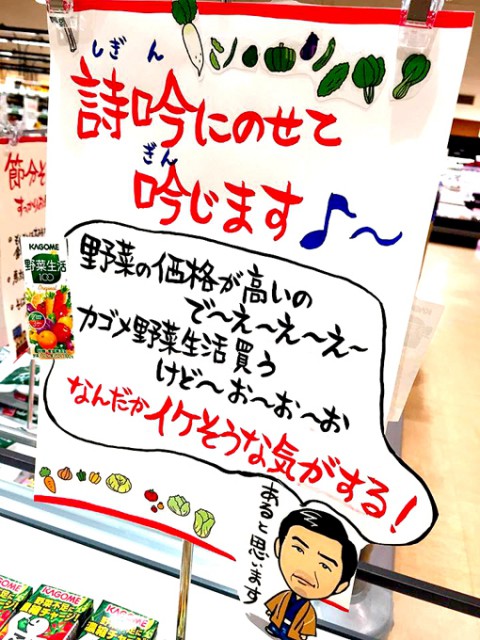 しぎん
詩吟にのせて
ぎん
吟じます♪〜
KAGOME
野菜生活
100
Original
野菜の価格が高いの
で〜え〜え〜え〜
カゴメ野菜生活買う
けど〜お〜お〜お
なんだかイケそうな気がする!
あると思います
節分そ
KAGOME
KAGOME
野菜不足に